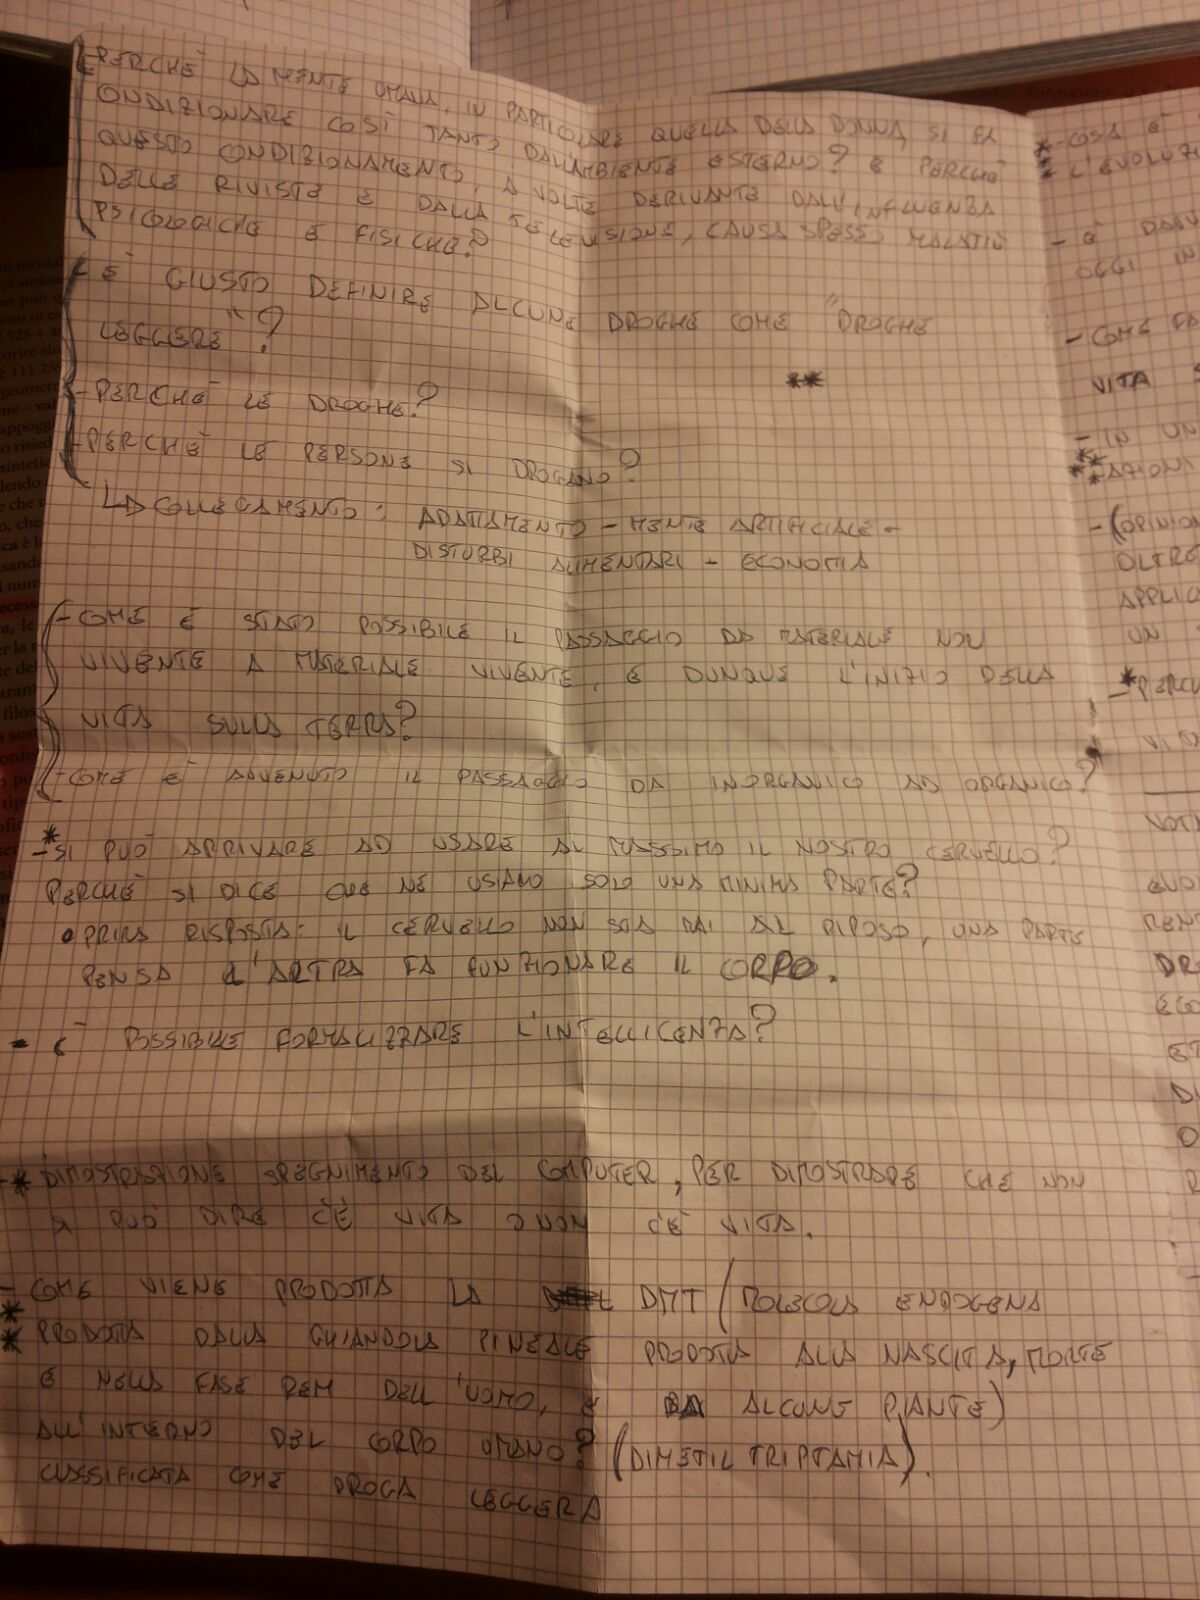 - PERCHÈ LA MENTE UMANA, IN PARTICOLARE QUELLA DELLA DONNA, SI FA
CONDIZIONARE COSÌ TANTO DALL'AMBIENTE ESTERNO? E PERCHÈ
QUESTO CONDIZIONAMENTO, A VOLTE DERIVANTE DALL'INFLUENZA
DELLE RIVISTE E DALLA TELEVISIONE, CAUSA SPESSO MALATTIE
PSICOLOGICHE E FISICHE?
- È GIUSTO DEFINIRE ALCUNE DROGHE COME "DROGHE
LEGGERE"?
**
- PERCHÈ LE DROGHE?
- PERCHÈ LE PERSONE SI DROGANO?
↳ COLLEGAMENTO: ADATTAMENTO - MENTE ARTIFICIALE -
DISTURBI ALIMENTARI - ECONOMIA
- COME È STATO POSSIBILE IL PASSAGGIO DA MATERIALE NON
VIVENTE A MATERIALE VIVENTE, E DUNQUE L'INIZIO DELLA
VITA SULLA TERRA?
- COME È AVVENUTO IL PASSAGGIO DA INORGANICO AD ORGANICO?
*
- SI PUÒ ARRIVARE AD USARE AL MASSIMO IL NOSTRO CERVELLO?
PERCHÈ SI DICE CHE NE USIAMO SOLO UNA MINIMA PARTE?
• PRIMA RISPOSTA: IL CERVELLO NON STA MAI AL RIPOSO, UNA PARTE
PENSA L'ARTRA FA FUNZIONARE IL CORPO.
- È POSSIBILE FORMALIZZARE L'INTELLIGENZA?
-* DIMOSTRAZIONE SPEGNIMENTO DEL COMPUTER, PER DIMOSTRARE CHE NON
SI PUÒ DIRE C'È VITA O NON C'È VITA.
- COME VIENE PRODOTTA LA DMT (MOLECOLA ENDOGENA
** PRODOTTA DALLA GHIANDOLA PINEALE PRODOTTA ALLA NASCITA, MORTE
E NELLA FASE REM DELL'UOMO, E DA ALCUNE PIANTE)
ALL'INTERNO DEL CORPO UMANO? (DIMETIL TRIPTAMIA).
CLASSIFICATA COME DROGA LEGGERA
* - COSA È
* L'EVOLUZI
- È
OGGI IN
- COME FA
VITA
- IN UN
** AZIONI
- (OPINION
OLTRE
APPLIC
UN
-* PERCH
NOT
DR